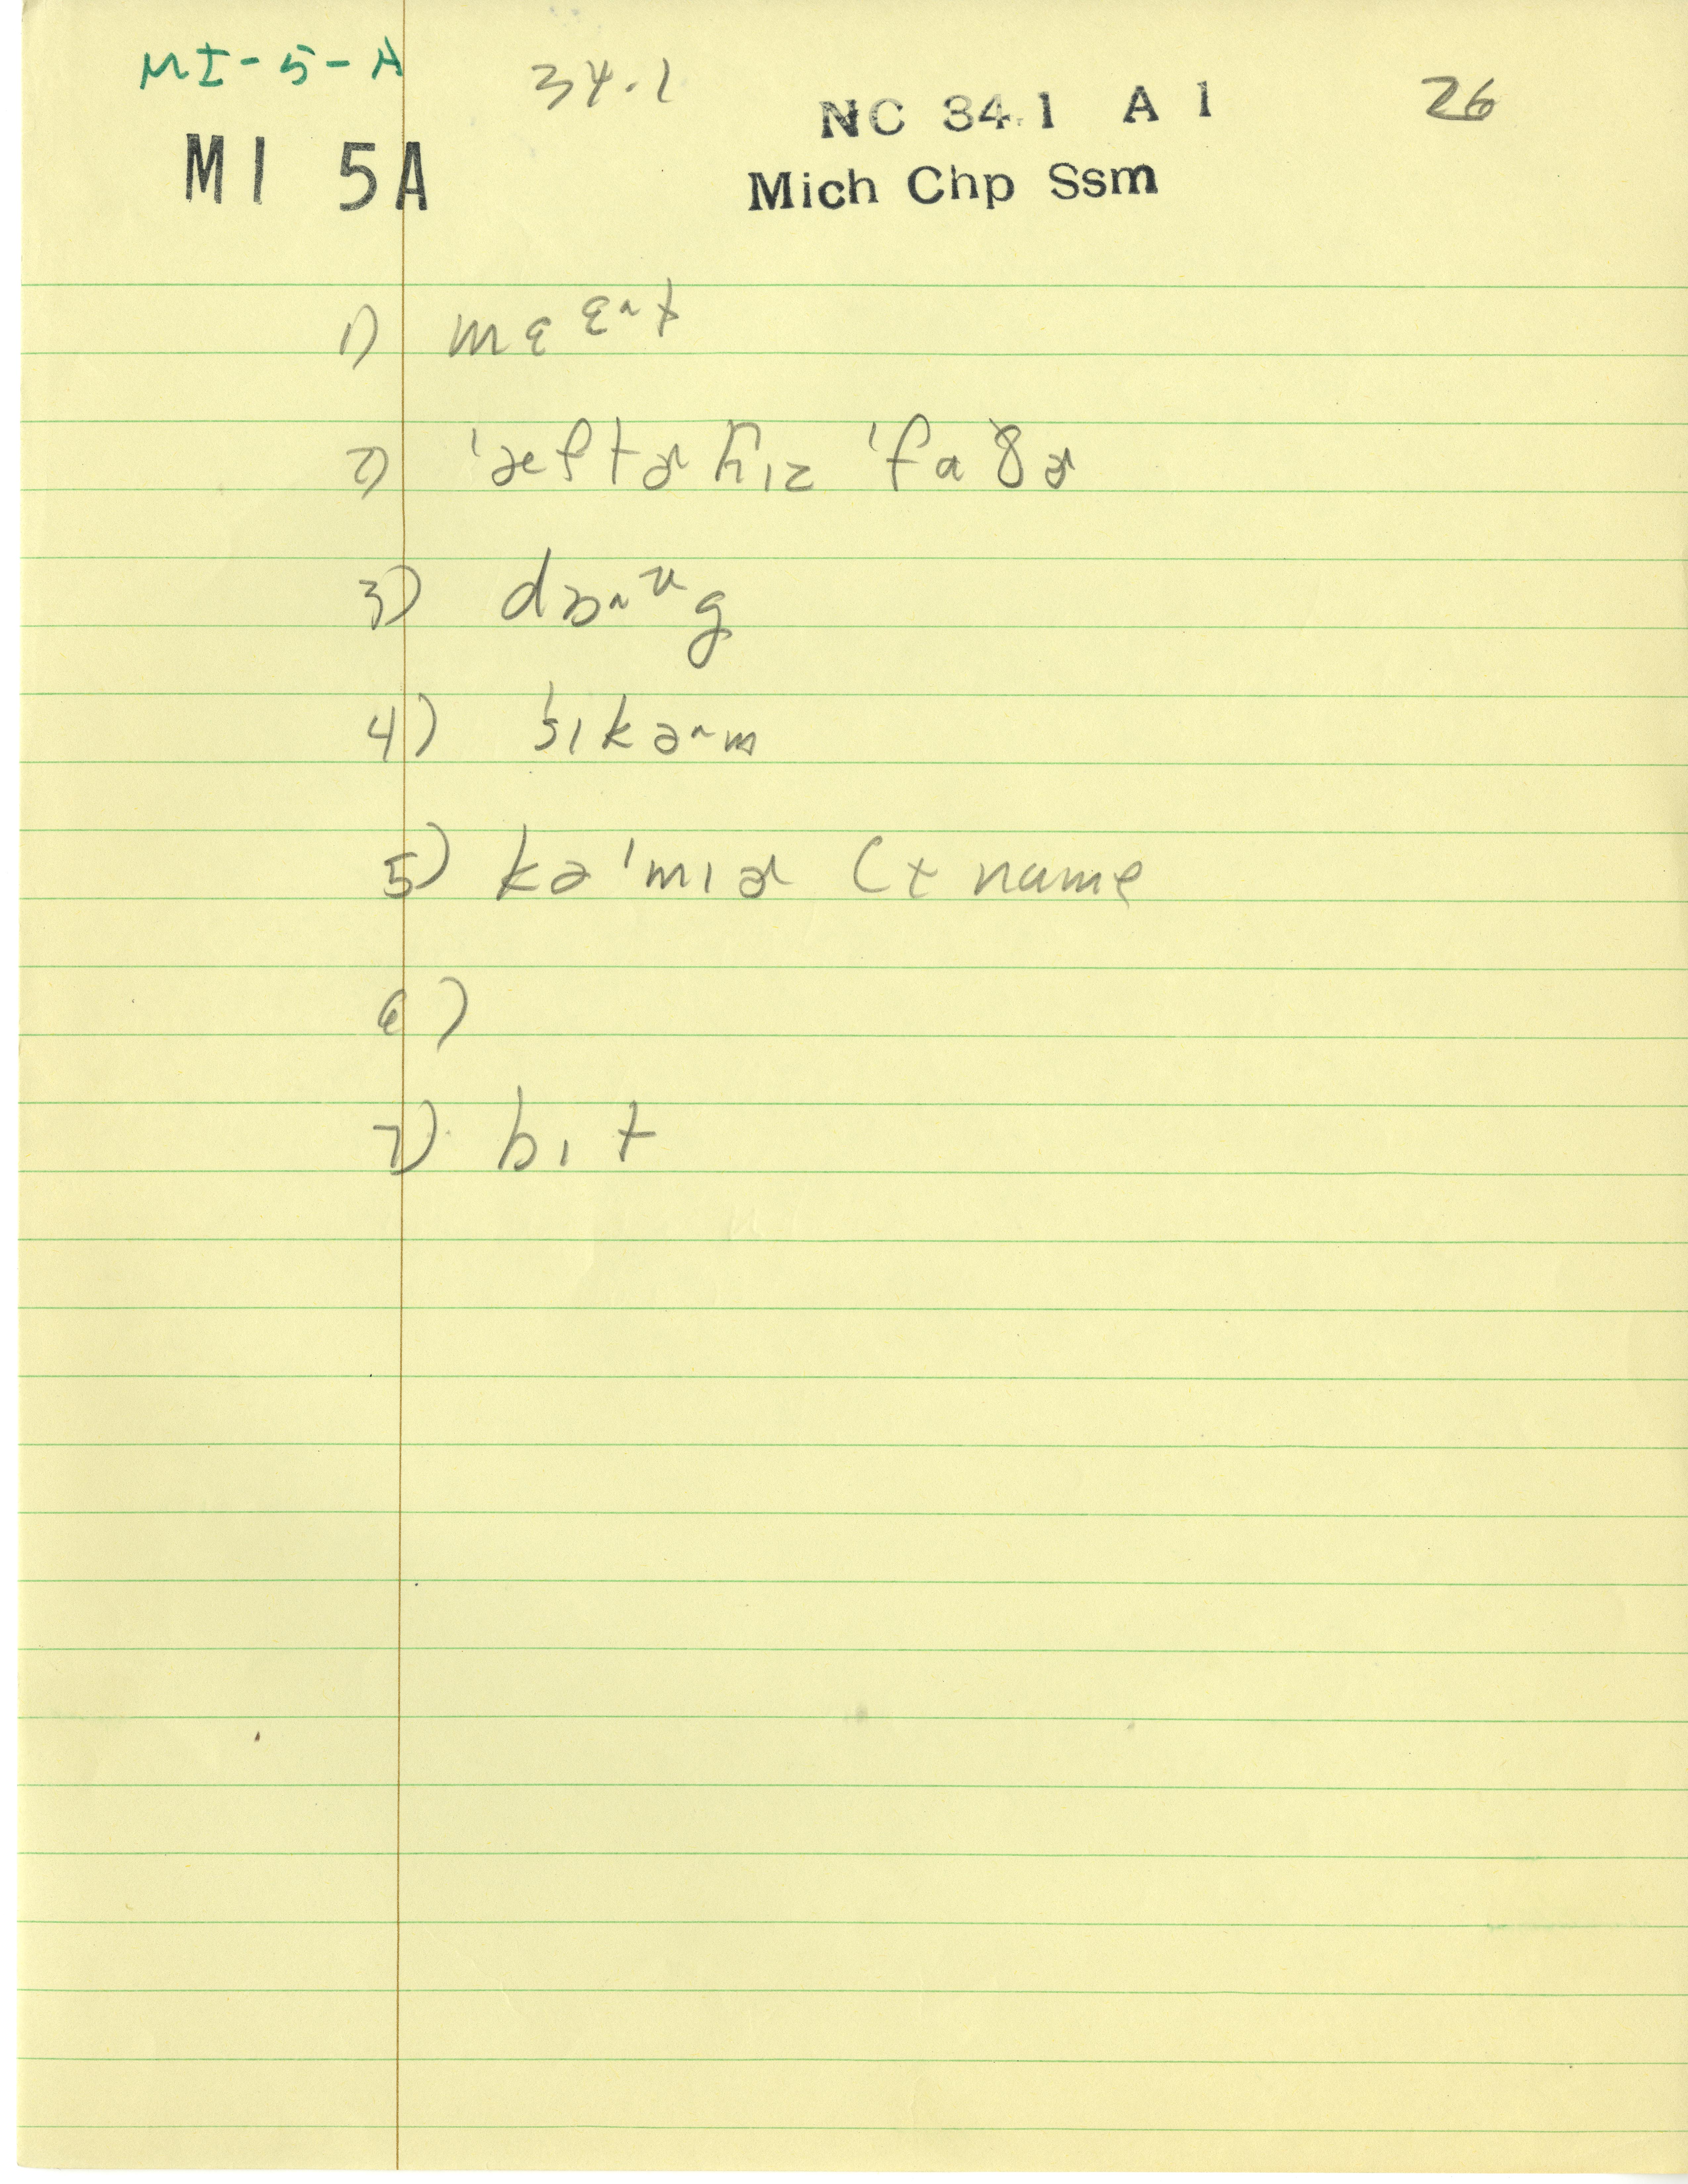 MI-5-A 34.1 26
NC 34.1 A 1
MI 5A Mich Chp Ssm
1)
2) ˈæftɚ hɪz ˈfaðɚ
3)
4)
5) kəˈmɪɚ Ct name
6)
7) bɪt